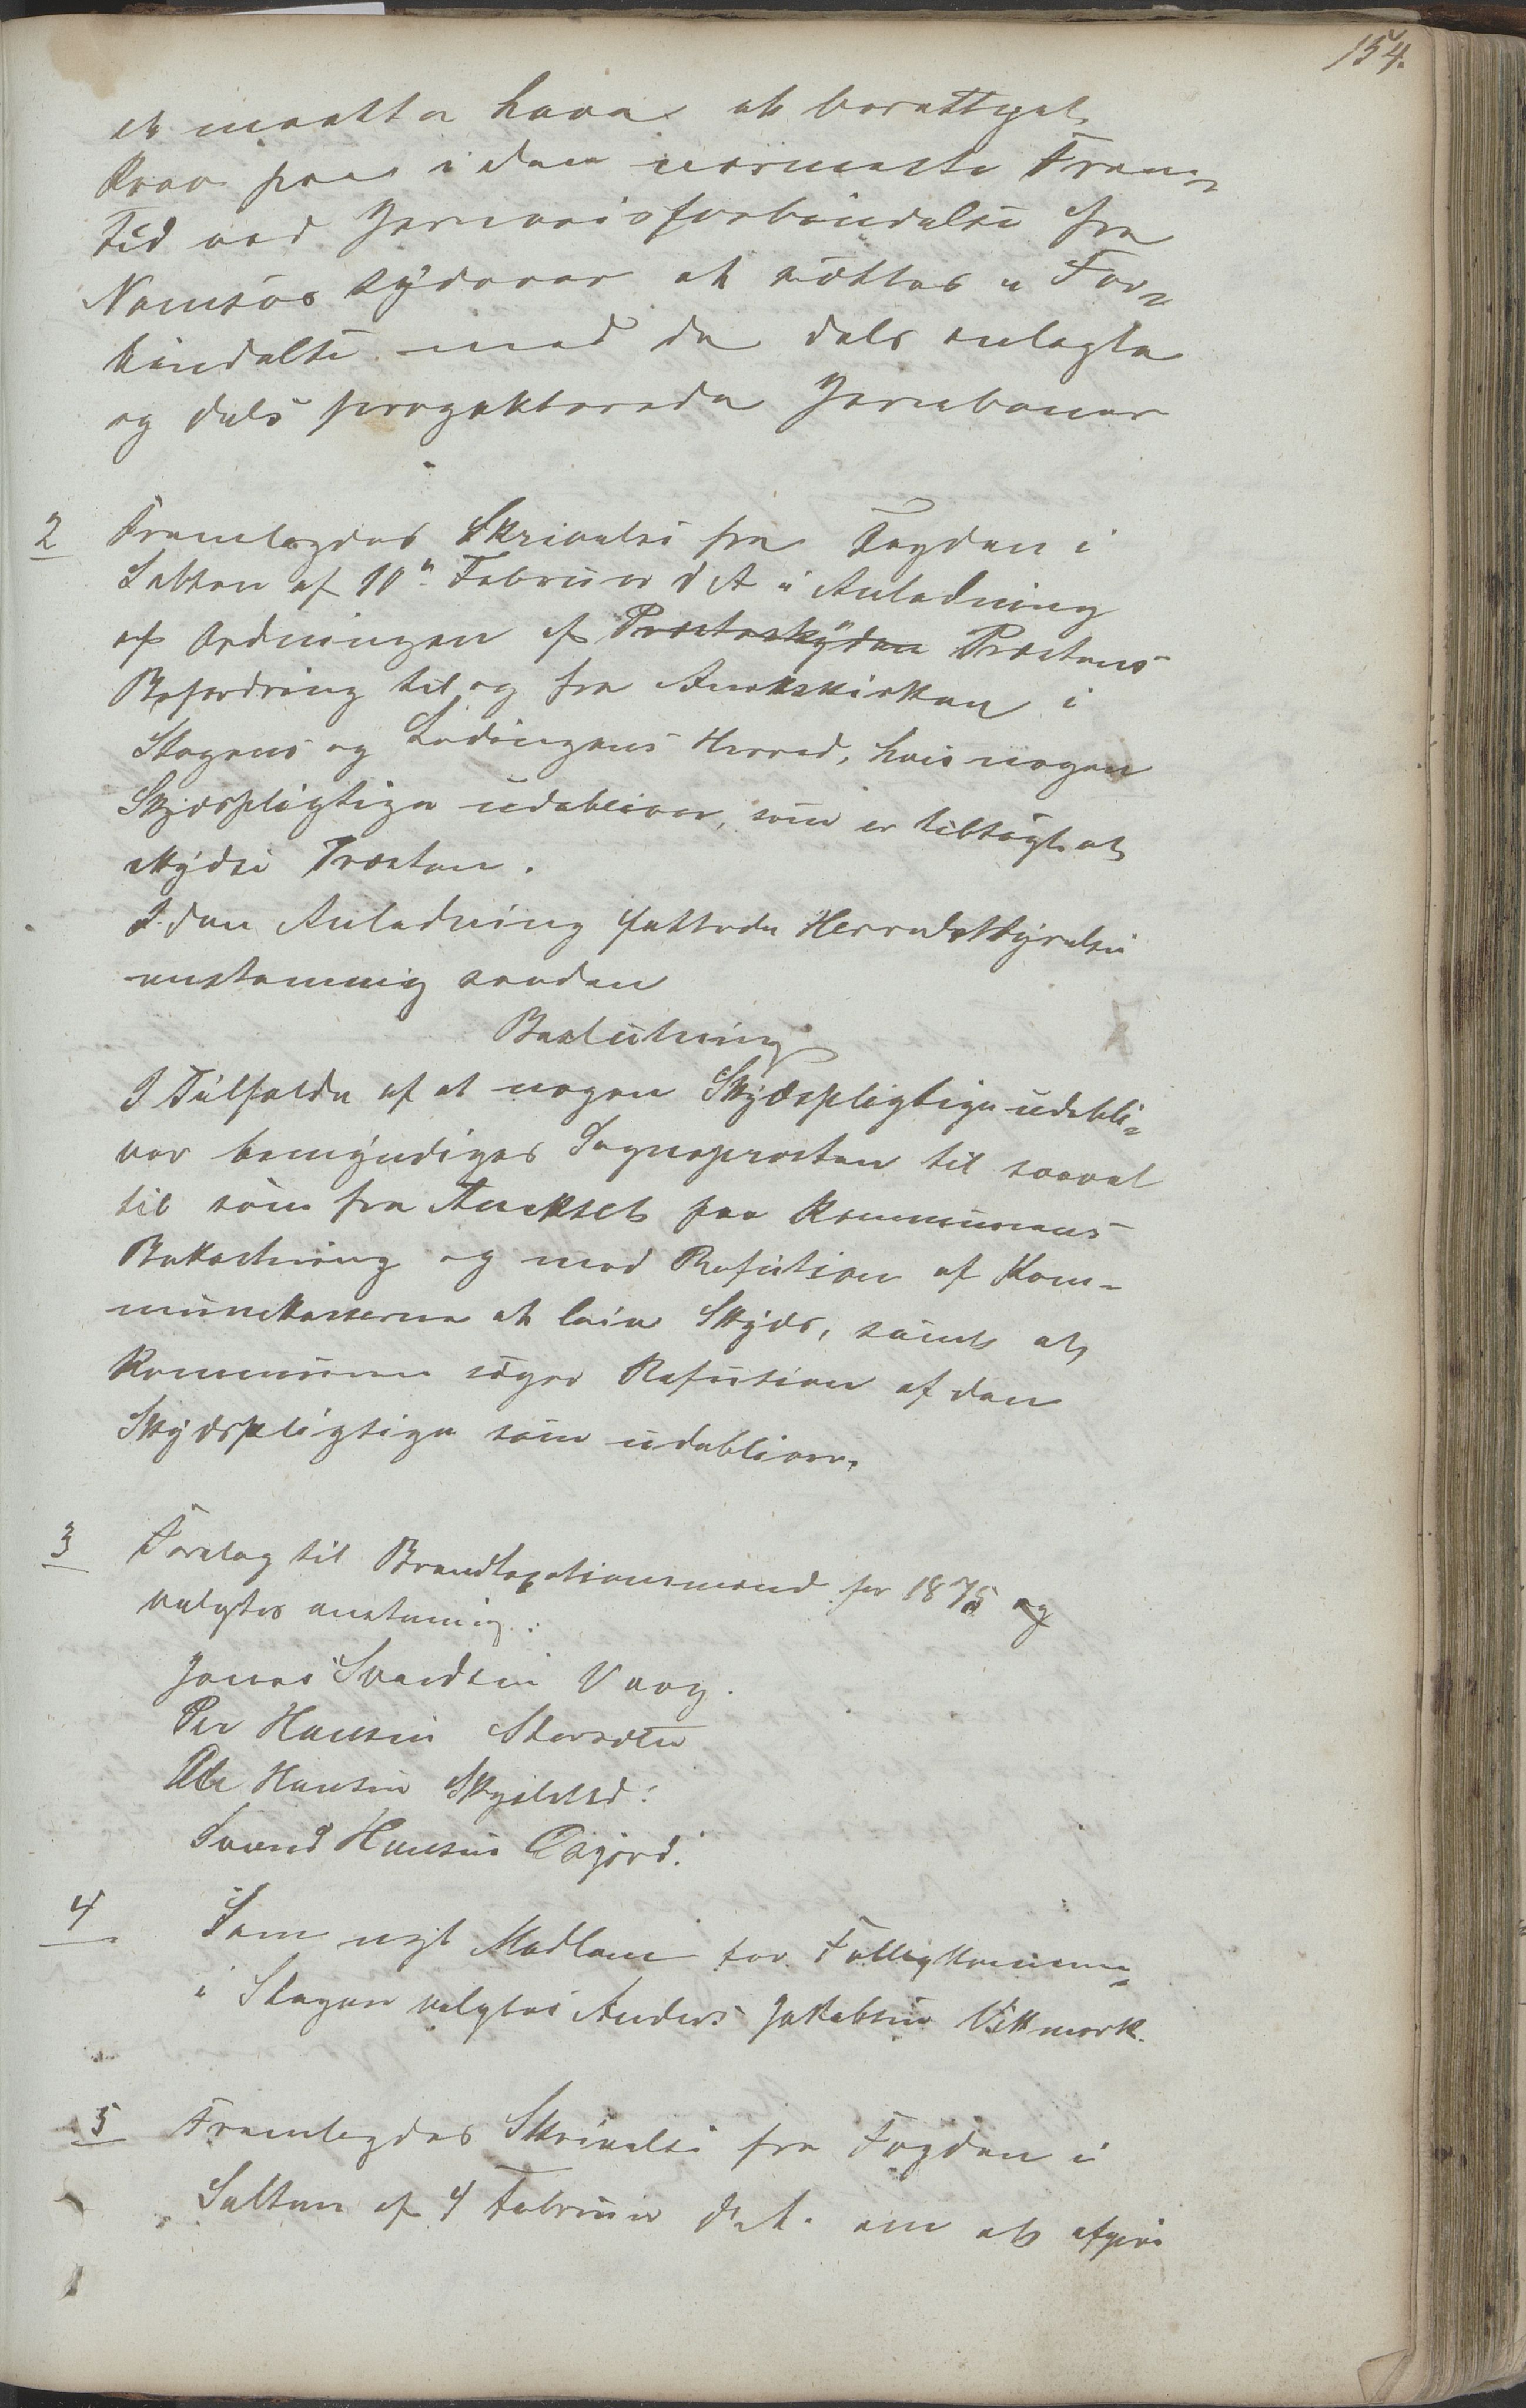 154.
at maatte have et berettiget
Krav paa i den nærmeste Frem-
tid ved Jernveisforbindelse fra
Namsos sydover at sættes i For-
bindelse med de dels anlagte
og dels projekterede Jernbaner
2 Fremlagdes Skrivelse fra Fogden i
Salten af 10de Februar d A i Anledning
af Ordningen af Præsteskydsen Præstens
Befordring til og fra Annekskirken i
Stegens og Lødingens Herred, hvis nogen
Skydspligtige udebliver, som er tilsagt at
skydse Præsten.
I den Anledning fattede Herredsstyrelsen
enstemmig saadan
Beslutning
I Tilfælde af at nogen Skydspligtige udebli-
ver bemyndiges Sognepræsten til saavel
til som fra Annekset paa Kommunens
Bekostning og mod Refusion af Kom-
munekasserne at leie Skyds, samt at
Kommunen søger Refusion af den
Skydspligtige som udebliver.
3 Forslag til Brandtaxationsmænd for 1875 og
valgtes enstemmig:
Jonas Svendsen Vaag.
Per Hansen Storsæter
Ole Hansen Skjelstad.
Svend Hansen Øigjord.
4 Som nyt Medlem for Fattigkommis.
i Stegen valgtes Anders Jakobsen Vikmark.
5 Fremlagdes Skrivelse fra Fogden i
Salten af 4 Februar d. A. om at afgive